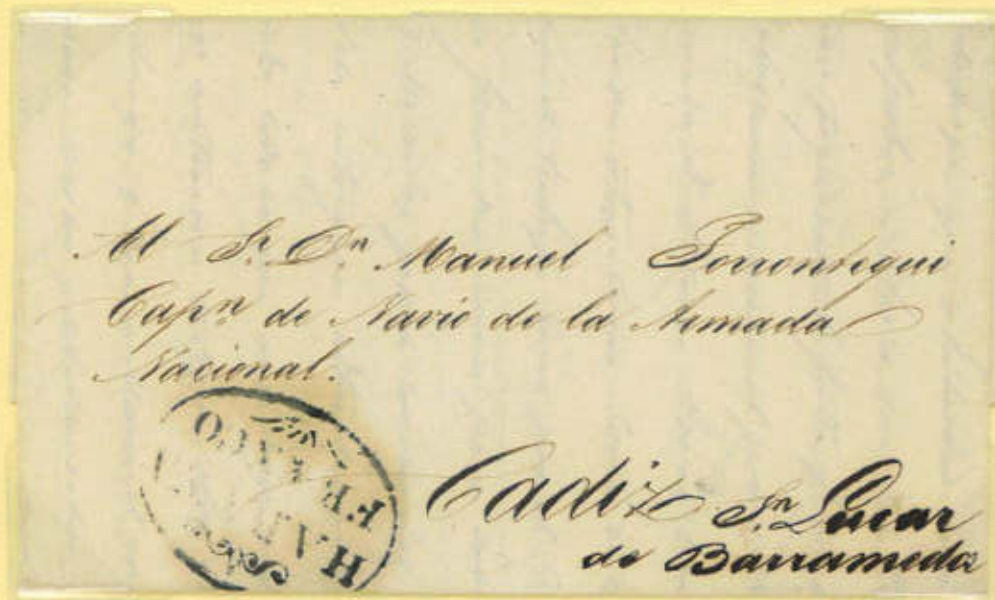 Al Sr. Dn. Manuel Torrontegui
Capn. de Navio de la Armada
Nacional.
FRANCO
Cadiz Sn. Lucar
de Barrameda